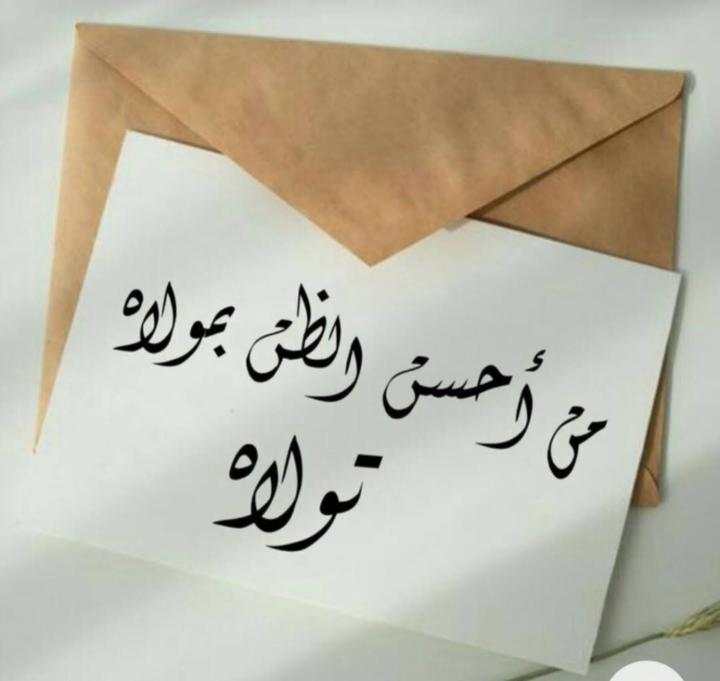 من أحسن الظن بمولاه
تولاه